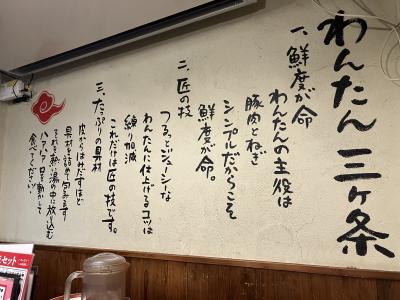 わんたん三ヶ条
一、鮮度が命
わんたんの主役は
豚肉とねぎ
シンプルだからこそ
鮮度が命。
二、匠の技
つるっとジューシーな
わんたんに仕上げるコツは
練り加減
これだけは匠の技です。
三、たっぷりの具材
皮からはみだすほど
具材を詰めて包みます
それを熱い湯の中に放り込む
ハフハフ口を動かして
食べてください。
セット